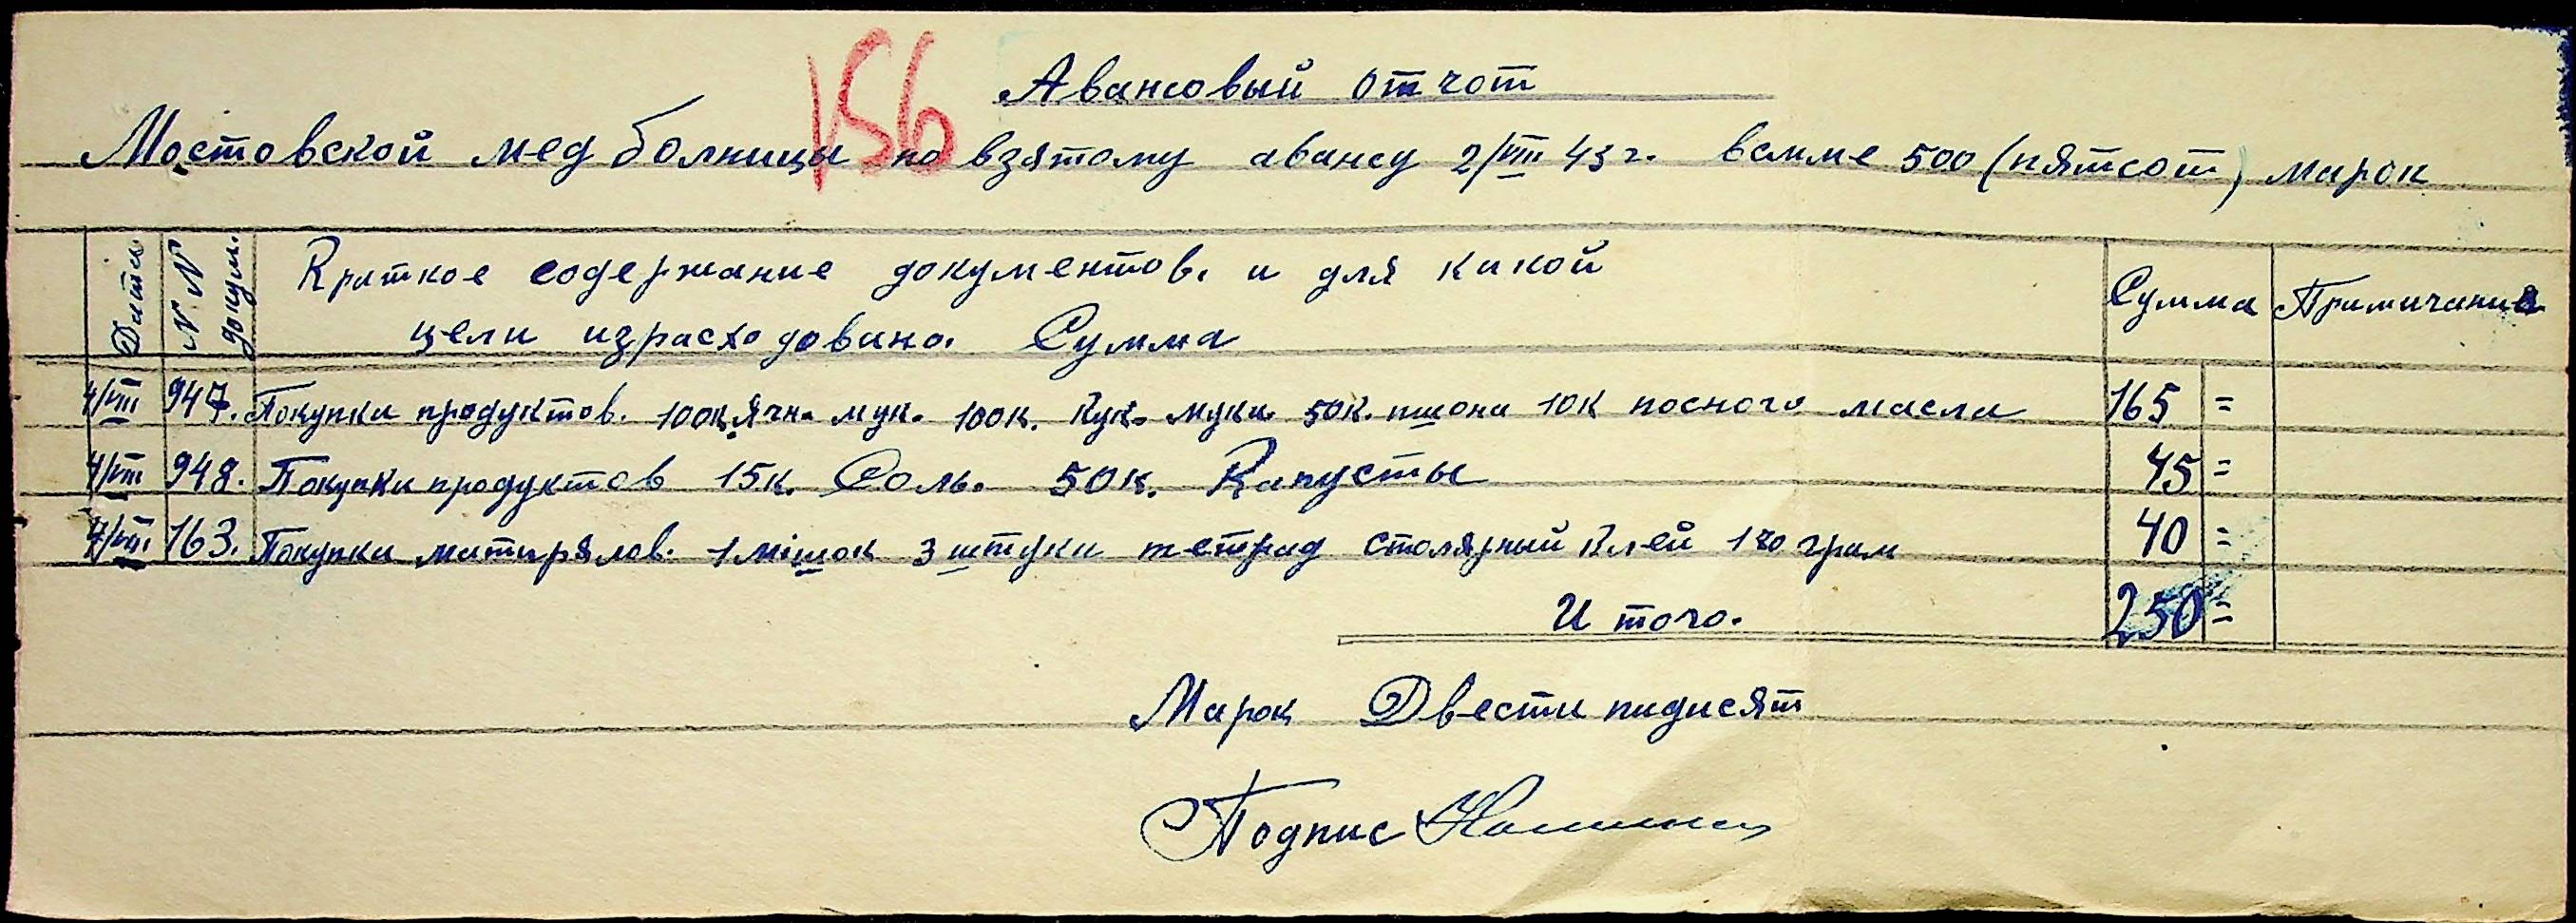 156
Авансовый отчот
Мостовской мед болницы по взятому авансу 2/VIII 43 г. всмме 500 (пятсот) марок
Дата
N. N докум.
Краткое содержание документов. и для какой
цели израсходована. Сумма
Сумма
Примичание
4/VIII 947. Покупка продуктов. 100к. Ячн. мук. 100к. Кук. муки. 50к. пшона 10К посного масла 165 =
4/VIII 948. Покупка продуктов 15к. Соль. 50к. Капусты 45 =
7/VIII. 163. Покупка матирялов. 1 мiшок 3 штуки тетрад столярный Клей 120 грам 40 =
И того. 250 =
Марок Двести пидисят
Подпис